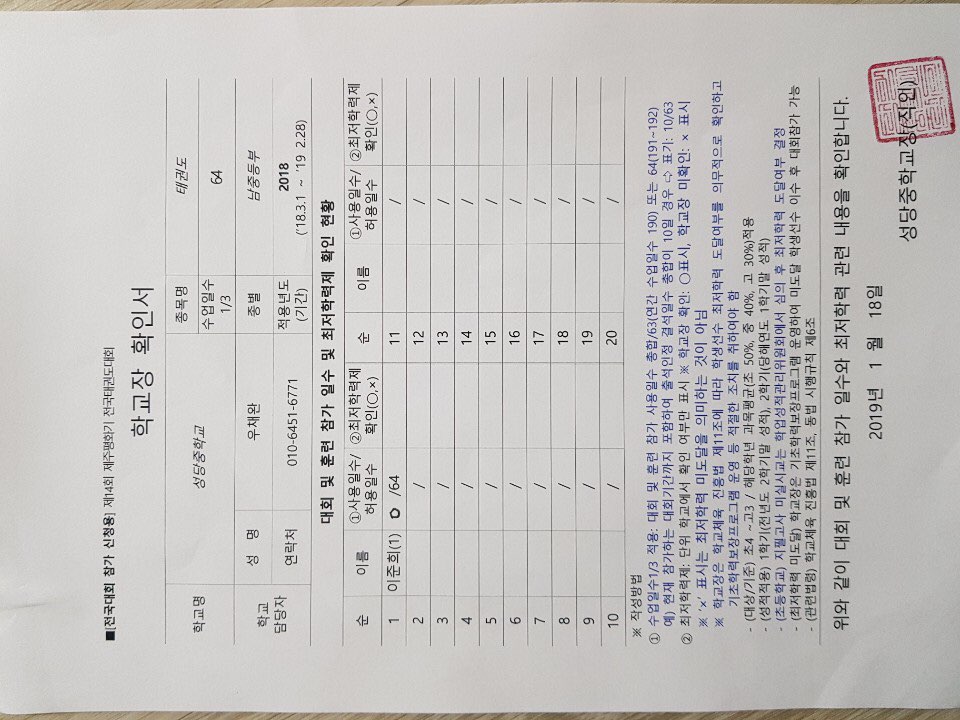 ■[전국대회 참가 신청용] 제14회 제주평화기 전국태권도대회
학교장 확인서
학교명 성당중학교 종목명 태권도
학교 담당자 성 명 우채완 수업일수 1/3 64
연락처 010-6451-6771 종별 남중등부
적용년도 (기간) 2018 ('18.3.1 ~ '19 2.28)
대회 및 훈련 참가 일수 및 최저학력제 확인 현황
순 이름 ①사용일수/허용일수 ②최저학력제 확인(○,×) 순 이름 ①사용일수/허용일수 ②최저학력제 확인(○,×)
1 이준희(1) 0 /64 11 /
2 / 12 /
3 / 13 /
4 / 14 /
5 / 15 /
6 / 16 /
7 / 17 /
8 / 18 /
9 / 19 /
10 / 20 /
※ 작성방법
① 수업일수1/3 적용: 대회 및 훈련 참가 사용일수 종합/63(연간 수업일수 190) 또는 64(191~192)
예) 현재 참가하는 대회기간까지 포함하여 출석인정 결석일수 총합이 10일 경우 ⇨ 표기: 10/63
② 최저학력제: 단위 학교에서 확인 여부만 표시 ※ 학교장 확인: ○표시, 학교장 미확인: × 표시
※ '×' 표시는 최저학력 미도달을 의미하는 것이 아님
※ 학교장은 학교체육 진흥법 제11조에 따라 학생선수 최저학력 도달여부를 의무적으로 확인하고
기초학력보장프로그램 운영 등 적절한 조치를 취하여야 함
- (대상/기준) 초4 ~고3 / 해당학년 과목평균(초 50%, 중 40%, 고 30%)적용
- (성적적용) 1학기(전년도 2학기말 성적), 2학기(당해연도 1학기말 성적)
- (초등학교) 지필고사 미실시교는 학업성적관리위원회에서 심의 후 최저학력 도달여부 결정
- (최저학력 미도달) 학교장은 기초학력보장프로그램 운영하여 미도달 학생선수 이수 후 대회참가 가능
- (관련법령) 학교체육 진흥법 제11조, 동법 시행규칙 제6조
위와 같이 대회 및 훈련 참가 일수와 최저학력 관련 내용을 확인합니다.
2019년 1 월 18일
성당중학교장(직인)